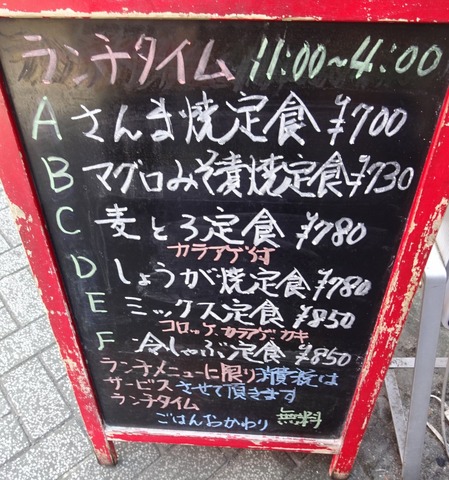 ランチタイム 11:00~4:00
A さんま焼定食 ¥700
B マグロみそ漬焼定食 ¥730
C 麦とろ定食 ¥780
カラアゲ付
D しょうが焼定食 ¥780
E ミックス定食 ¥850
コロッケ カラアゲ カキ
F 冷しゃぶ定食 ¥850
ランチメニューに限り消費税は
サービスさせて頂きます
ランチタイム
ごはんおかわり 無料